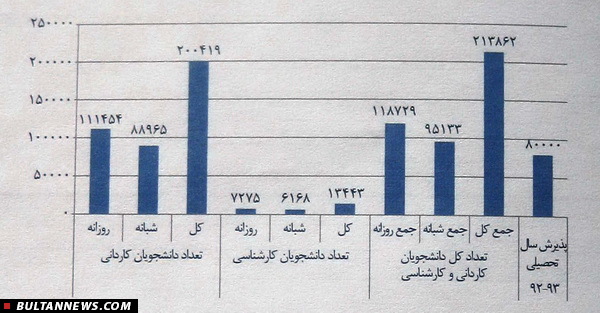 ۲۵۰۰۰۰
۲۰۰۰۰۰
۱۵۰۰۰۰
۱۰۰۰۰۰
۵۰۰۰۰
۰
۱۱۱۴۵۴
۸۸۹۶۵
۲۰۰۴۱۹
۷۲۷۵
۶۱۶۸
۱۳۴۴۳
۱۱۸۷۲۹
۹۵۱۳۳
۲۱۳۸۶۲
۸۰۰۰۰
روزانه
شبانه
کل
روزانه
شبانه
کل
جمع روزانه
جمع شبانه
جمع کل
تعداد دانشجویان کاردانی
تعداد دانشجویان کارشناسی
تعداد کل دانشجویان
کاردانی و کارشناسی
پذیرش سال
تحصیلی
۹۲-۹۳
BULTANNEWS.COM